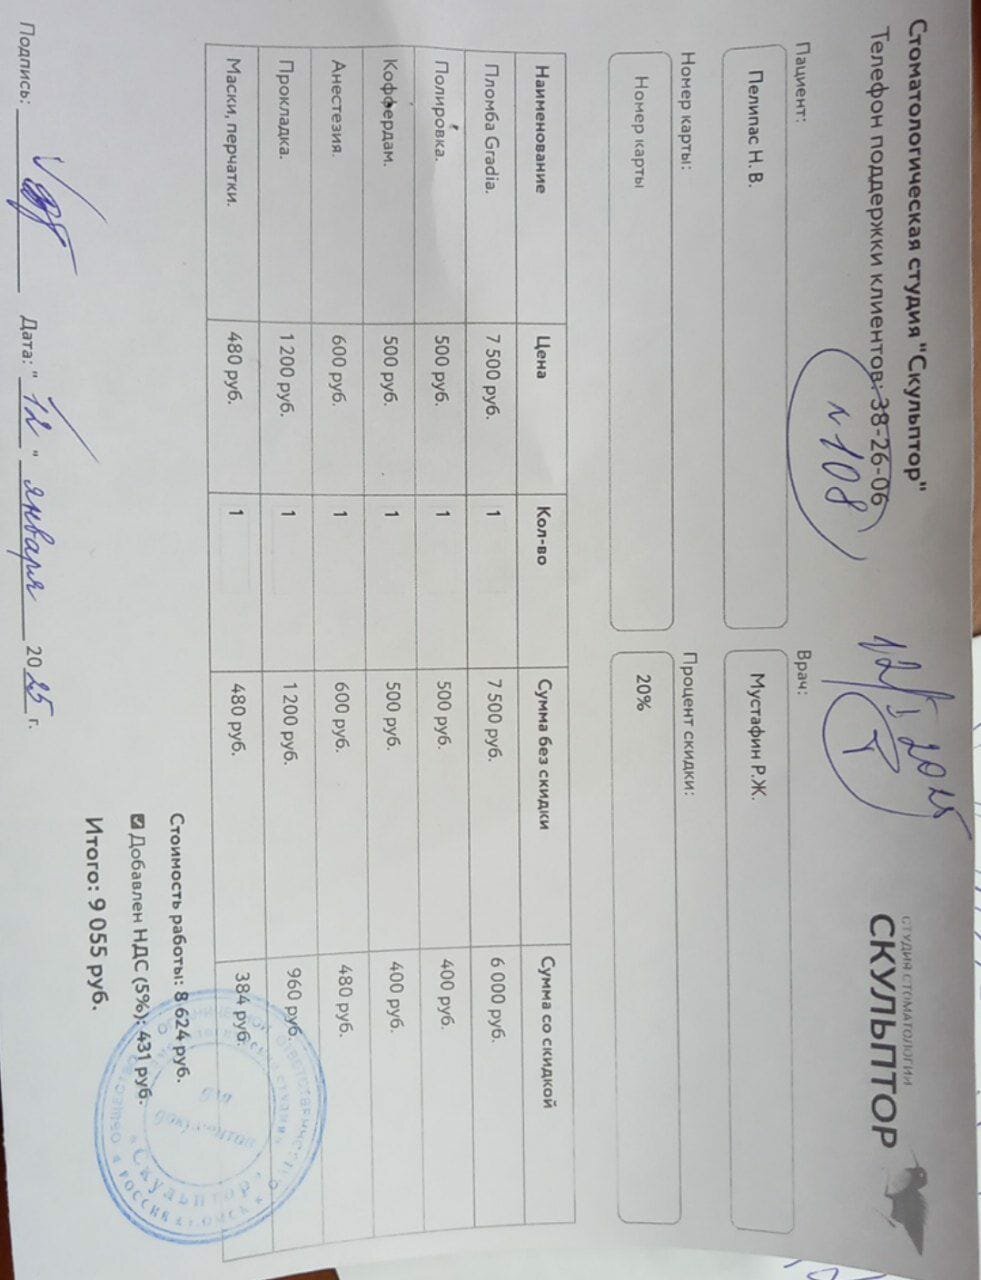 Стоматологическая студия "Скульптор"
Телефон поддержки клиентов: 38-26-06
N 108
12/1 2025
СТУДИЯ СТОМАТОЛОГИИ
СКУЛЬПТОР
Пациент: Врач:
Пелипас Н. В. Мустафин Р.Ж.
Номер карты: Процент скидки:
Номер карты 20%
Наименование Цена Кол-во Сумма без скидки Сумма со скидкой
Пломба Gradia. 7 500 руб. 1 7 500 руб. 6 000 руб.
Полировка. 500 руб. 1 500 руб. 400 руб.
Коффердам. 500 руб. 1 500 руб. 400 руб.
Анестезия. 600 руб. 1 600 руб. 480 руб.
Прокладка. 1 200 руб. 1 1 200 руб. 960 руб.
Маски, перчатки. 480 руб. 1 480 руб. 384 руб.
Стоимость работы: 8 624 руб.
Добавлен НДС (5%): 431 руб.
Итого: 9 055 руб.
Для документов
"Скульптор"
Подпись: Дата: "12" января 2025 г.